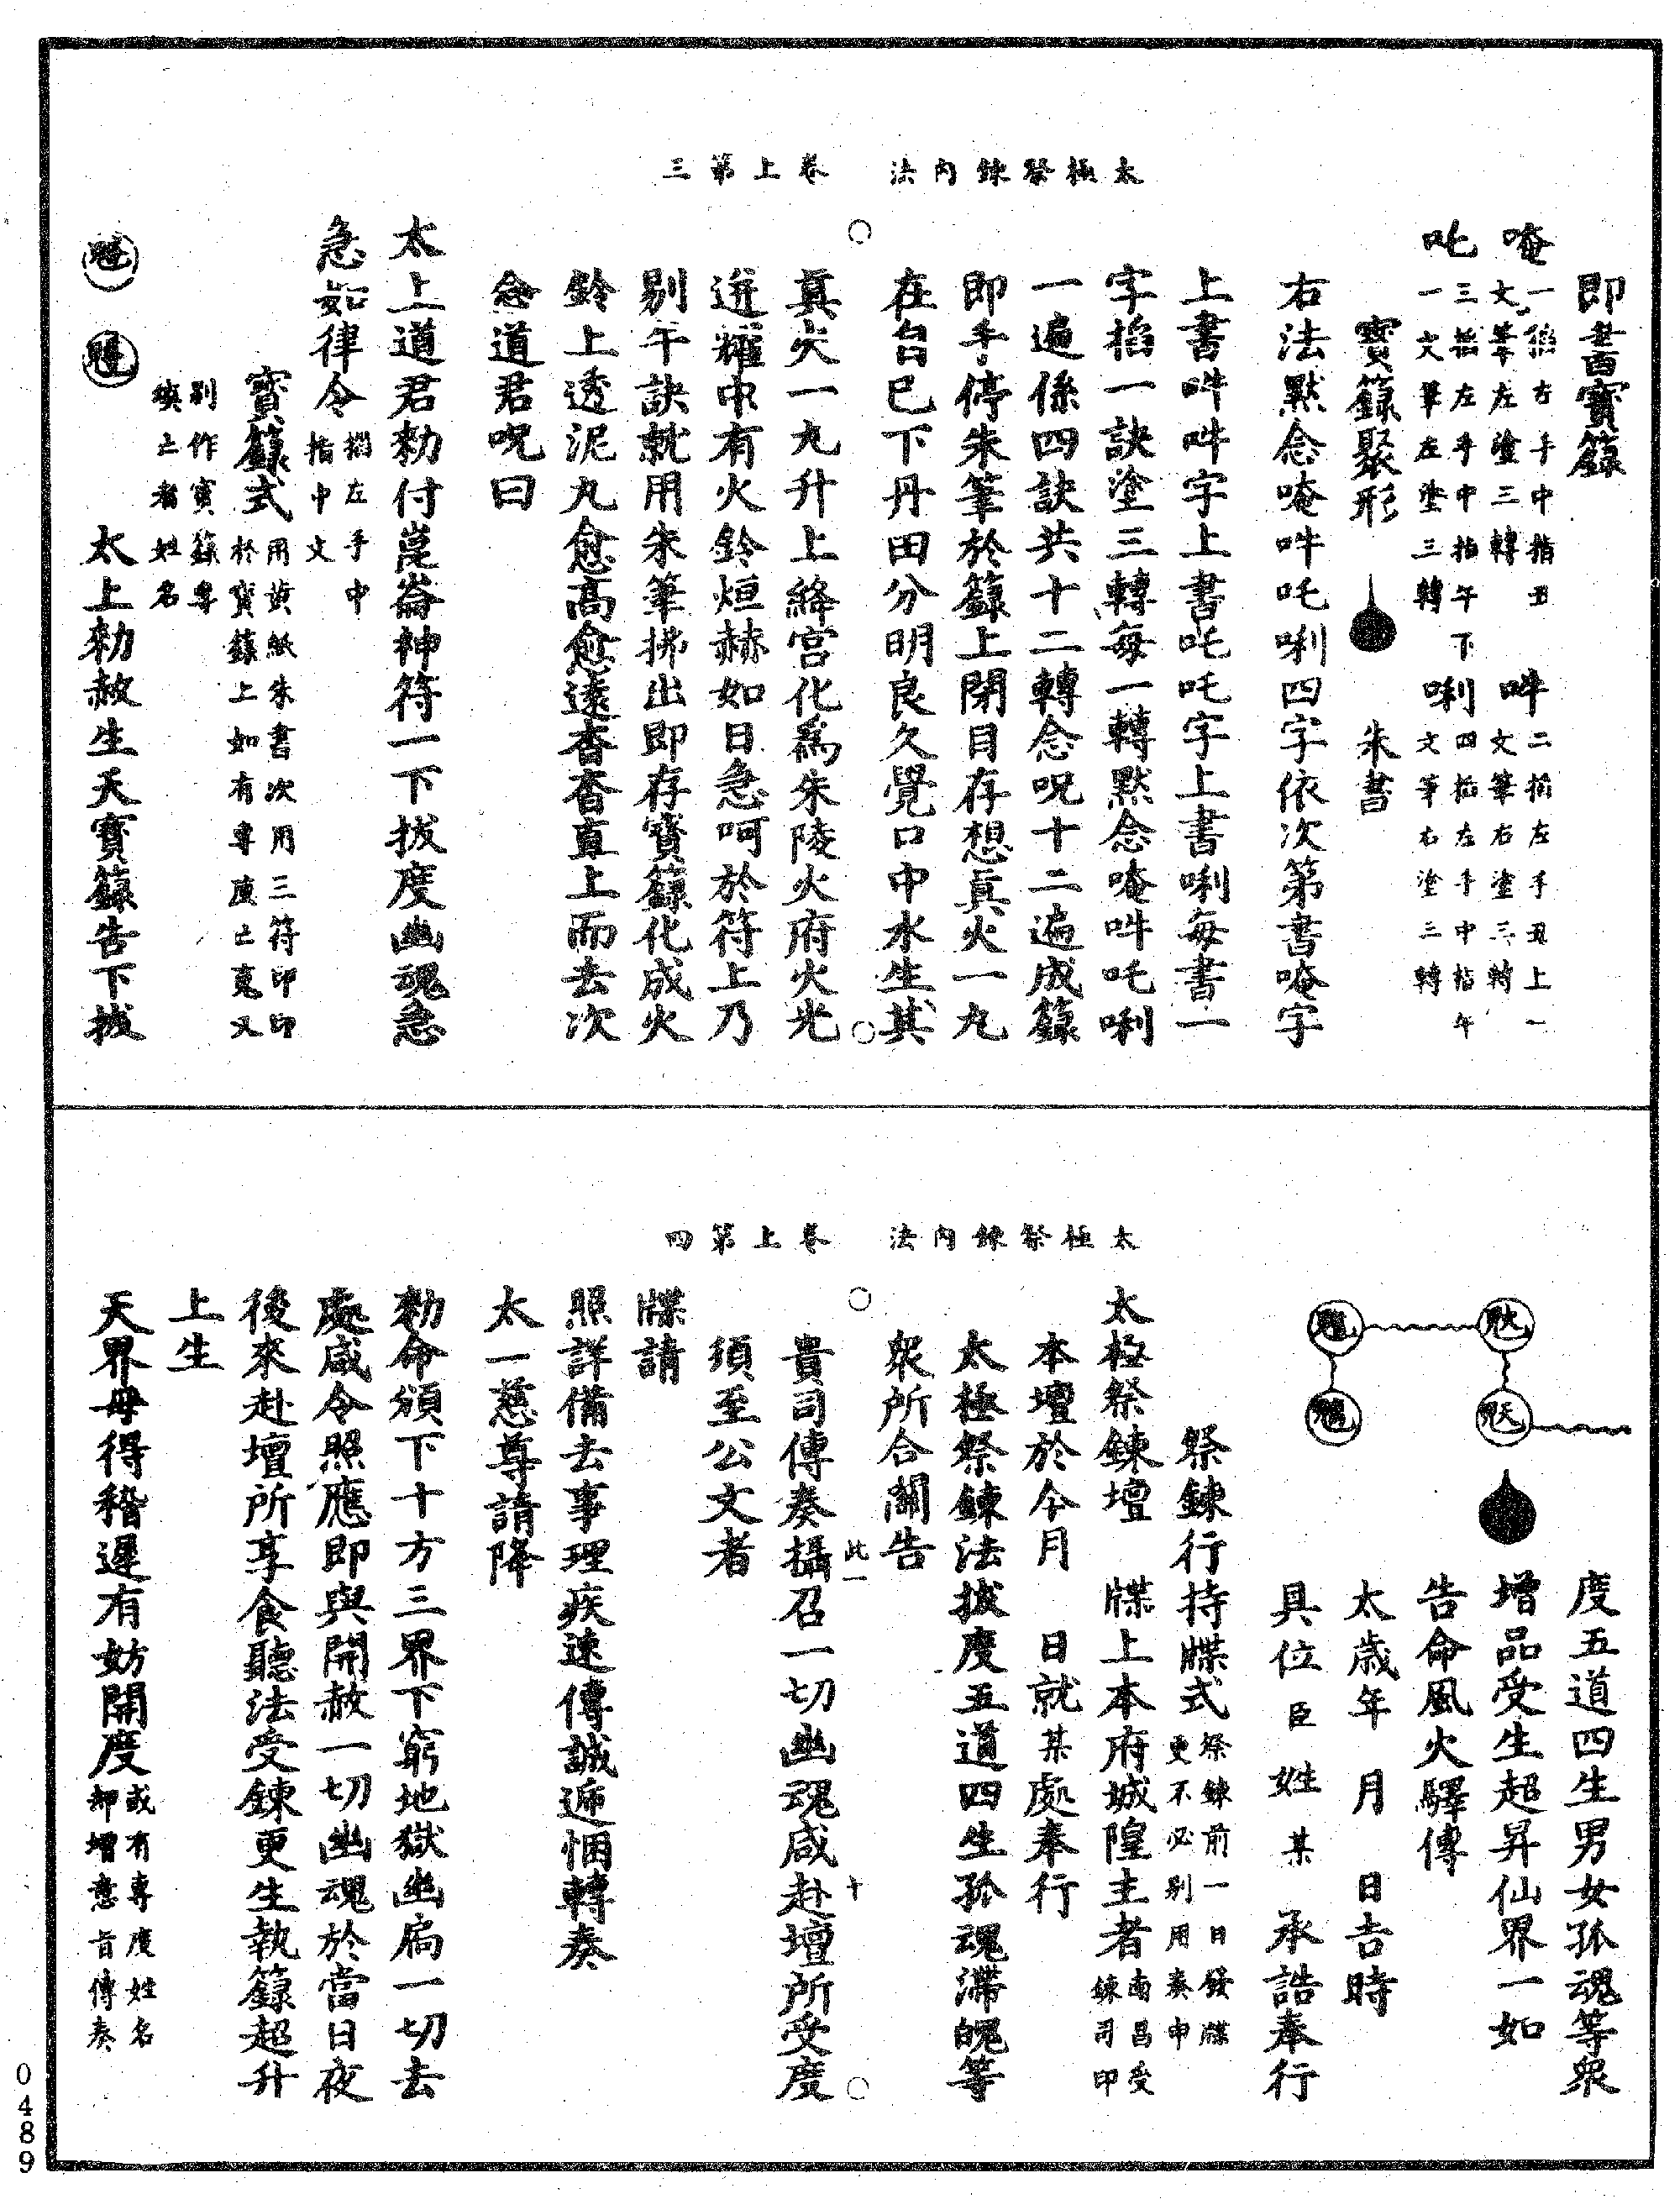 太極祭鍊內法　卷上第三
即書寶籙
唵一掐右手中指丑文筆左塗三轉　吽二掐左手丑上一文筆右塗三轉
吒三掐左手中指午下一文筆左塗三轉　唎四掐左手中指午文筆右塗三轉
寶籙聚形　朱書
右法默念唵吽吒唎四字依次第書唵字
上書吽吽字上書吒吒字上書唎每書一
字掐一訣塗三轉每一轉默念唵吽吒唎
一遍係四訣共十二轉念呪十二遍成籙
即手停朱筆於籙上閉目存想真火一丸
在臍下丹田分明良久覺口中水生其
真火一丸升上絳宮化為朱陵火府火光
迸耀中有火鈴烜赫如日急呵於符上乃
剔午訣就用朱筆拂出即存寶籙化成火
鈴上透泥丸愈高愈遠杳杳直上而去次
念道君呪曰
太上道君勑付崑崙神符一下拔度幽魂急
急如律令掐左手中指中文
寶籙式用黃紙朱書次用三符印印於寶籙上如有專度亡魂又
別作寶籙專煉亡者姓名
太上勑赦生天寶籙告下拔
太極祭鍊內法　卷上第四
度五道四生男女孤魂等眾
增品受生超昇仙界一如
告命風火驛傳
太歲年　月　日吉時
具位臣　姓　某　承誥奉行
祭鍊行持牒式祭鍊前一日發牒更不必別用奏申
太極祭鍊壇　牒上本府城隍主者南昌受鍊司印
本壇於今月　日就某處奉行
太極祭鍊法拔度五道四生孤魂滯魄等
眾所合關告
貴司傳奏攝召一切幽魂咸赴壇所受度
此一　十
須至公文者
牒請
照詳備去事理疾速傳誠遞悃轉奏
太一慈尊請降
勑命頒下十方三界下窮地獄幽扃一切去
處咸令照應即與開赦一切幽魂於當日夜
後來赴壇所享食聽法受鍊更生執籙超升
上生
天界毋得稽遲有妨開度或有專度姓名却增意旨傳奏
0489